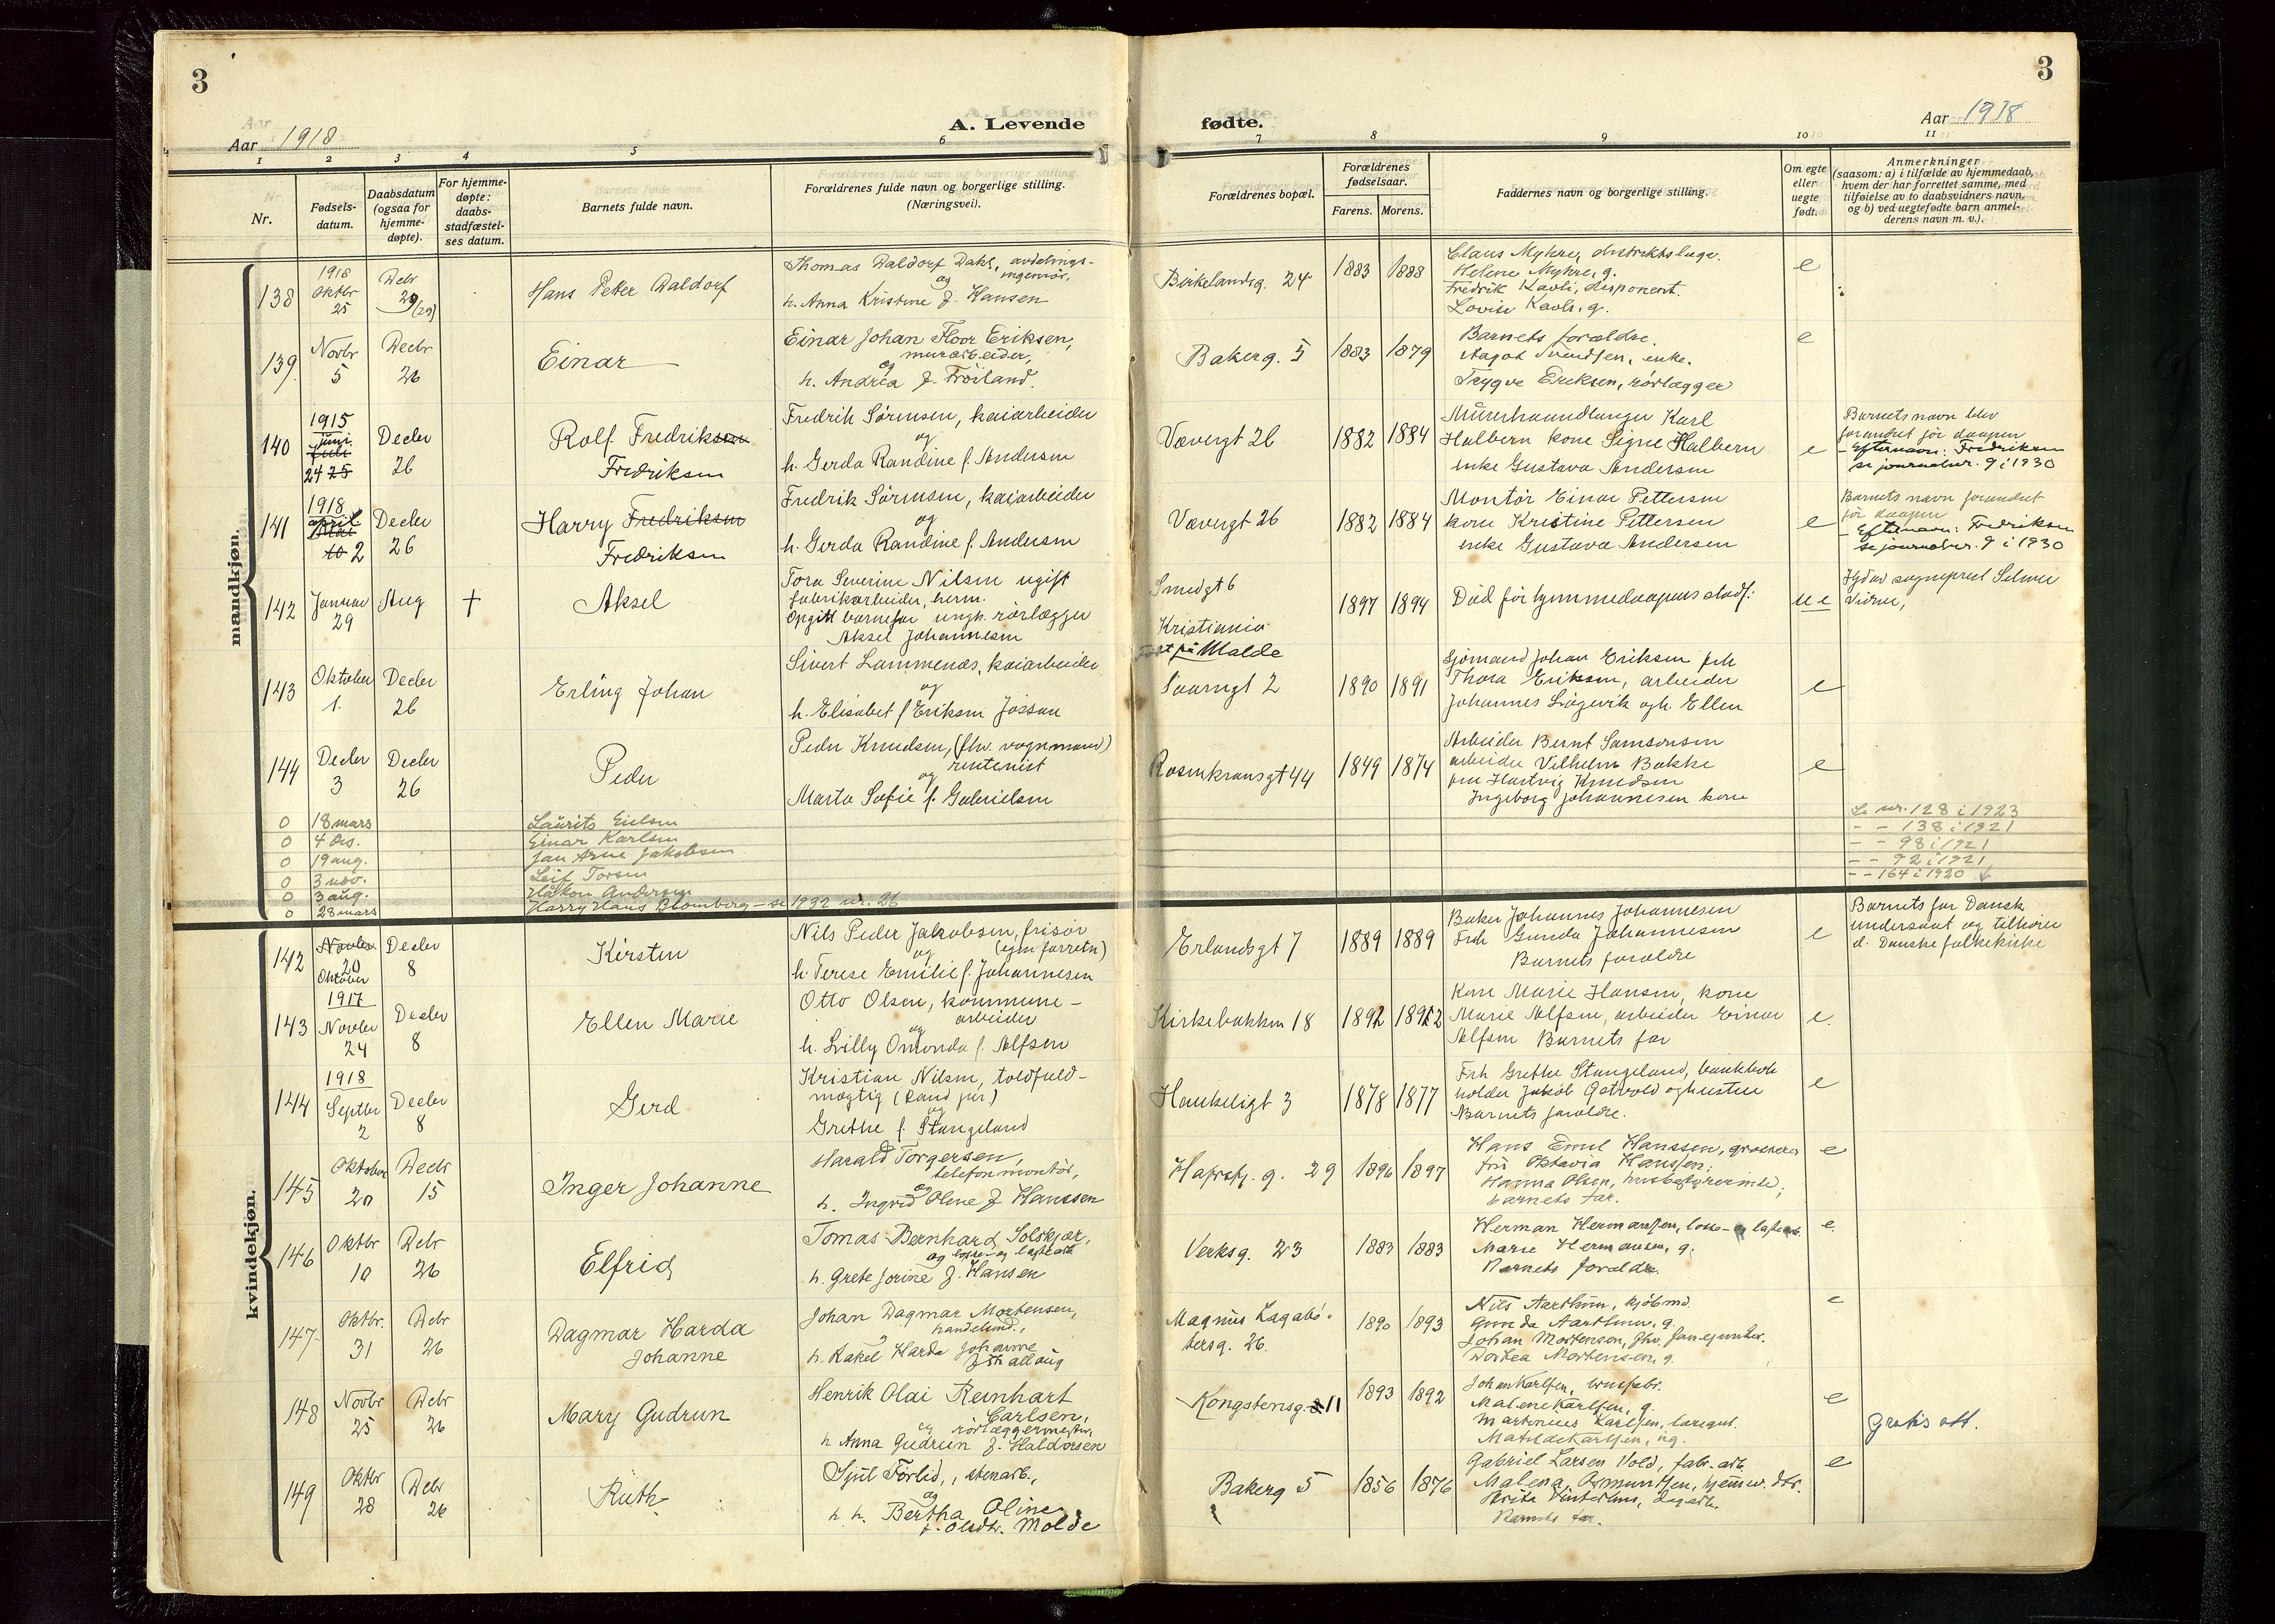 3
3
A. Levende
fødte.
Aar 1918
Aar 1918
1
2
3
4
5
6
7
8
9
10
11
Nr.
Fødsels-
datum.
Daabsdatum
(ogsaa for
hjemme-
døpte).
For hjemme-
døpte:
daabs-
stadfæstel-
ses datum.
Barnets fulde navn.
Forældrenes fulde navn og borgerlige stilling.
(Næringsvei).
Forældrenes bopæl.
Forældrenes
fødselsaar.
Farens.
Morens.
Faddernes navn og borgerlige stilling.
Om egte
eller
uegte
født.
Anmerkninger
(saasom: a) i tilfælde av hjemmedaab,
hvem der har forrettet samme, med
tilføielse av to daabsvidners navn,
og b) ved uegtefødte barn anmel-
derens navn m. v.).
mandkjøn.
138
1918
Oktbr
25
Debr
29
(29)
Hans Peter Valdorf
Thomas Valdorf Dahl, avdelings-
og ingeniør,
h. Anna Kristine f. Hansen
Birkelandsg. 24
1883
1888
Claus Myhre, distriktslæge.
Helene Myhre, g.
Fredrik Kavli, disponent.
Lovise Kavli, g.
e
139
Novbr
5
Decbr
26
Einar
Einar Johan Floor Eriksen,
murarbeider,
og
h. Andrea f. Frøiland.
Bakerg. 5
1883
1879
Barnets forældre.
Aagot Svendsen, enke.
Trygve Eriksen, rørlægger
e
140
1915
juni
Juli
24 25
Decbr
26
Rolf Fredriksen
Fredriksen
Fredrik Sørensen, kaiarbeider
og
h. Gerda Randine f. Andersen
Vævergt 26
1882
1884
Murerhaandlanger Karl
Halbern kone Signe Halbern
enke Gustava Andersen
e
Barnets navn blev
forandret før daapen
- Efternavn: Fredriksen
se journalnr. 9 i 1930
141
1918
april
Mai
10 2
Decbr
26
Harry Fredriksen
Fredriksen
Fredrik Sørensen, kaiarbeider
og
h. Gerda Randine f. Andersen
Vævergt 26
1882
1884
Montør Einar Pettersen
kone Kristine Pettersen
enke Gustava Andersen
e
Barnets navn forandret
før daapen
- Efternavn: Fredriksen
se journalnr. 9 i 1930
142
Januar
29
Aug
†
Aksel
Tora Severine Nilsen ugift
fabrikarbeider, herm.
Opgitt barnefar ungk. rørlægger
Aksel Johannesen
Smedgt 6
Kristiania
født på Molde
1897
1894
Død før hjemmedaapens stadf.
u e
sogneprest Selmer
143
Oktober
1.
Decbr
26
Erling Johan
Sivert Lammenæs, kaiarbeider
og
h. Elisabet f Eriksen Jössan
2
1890
1891
Sjømand Johan Eriksen frk
Thora Eriksen, arbeider
Johannes Ligevik og h. Ellen
e
144
Decbr
3
Decbr
26
Peder
Peder Knudsen, (fhv. vognmand)
rentenist
og
Marta Sofie f. Gabrielsen
Rosenkransgt 44
1849
1874
Arbeider Bernt Samsonsen
arbeider Vilhelm Bakke
fru Hartvig Knudsen
Ingeborg Johannesen kone
e
0
18 mars
Laurits Eielsen
Se nr. 128 i 1923
0
4 des.
Einar Karlsen
- - 138 i 1921
0
19 aug.
Jan Arne Jakobsen
- - 98 i 1921
0
3 nov.
Leif Torsen
- - 92 i 1921
0
3 aug.
Håkon Andersen
- - 164 i 1920
0
28 mars
Harry Hans Blomberg - se 1932 nr. 26
kvindekjøn.
142
Novbr
20
Oktober
Decbr
8
Kirsten
Nils Peder Jakobsen, frisør
og (egen forretn)
h. Terese Emilie f. Johannesen
Erlandsgt 7
1889
1889
Baker Johannes Johannesen
Frk Gunda Johannesen
Barnets forældre
e
Barnets far Dansk
undersaat og tilhører
d. Danske folkekirke
143
1917
Novbr
24
Decbr
8
Ellen Marie
Otto Olsen, kommune-
arbeider
og
h. Lilly Omonda f. Alfsen
Kirkebakken 18
1892
1892
Kone Marie Hansen, kone
Marie Alfsen, arbeider Einar
Alfsen Barnets far
e.
144
1918
Septbr
2
Decbr
8
Gerd
Kristian Nilsen, toldfuld-
mægtig (kand jur.)
og
Grethe f. Stangeland
Haukeligt 3
1878
1877
Frk Grethe Stangeland, bankbok
holder Jakob Østvold og hustru
Barnets forældre.
e
145
Oktober
20
Decbr
15
Inger Johanne
Harald Torgersen,
telefonmontør,
og
h. Ingrid Olene f. Hanssen
Hafrsfj. g. 29
1896
1897
Hans Emil Hanssen, grosserer
fru Oktavia Hanssen;
Hanna Olsen, husbestyrerinde;
barnets far.
e
146
Oktbr
10
Debr
26
Elfrid
Tomas Bernhard Solskjær,
og losse- og lastearb.
h. Grete Jorine f. Hansen
Verksg. 23
1883
1883
Herman Hermansen, losse- og lastearb.
Marie Hermansen, g.
Barnets forældre.
e.
147
Oktbr.
31
Debr
26
Dagmar Harda
Johanne
Johan Dagmar Mortensen,
handelsmd.,
h. Rakel Harda Johanne
Magnus Lagabø-
tersg. 26.
1890
1893
Nils Aarthun, kjøbmd.
Gunda Aarthun, g.
Johan Mortensen, fhv.
Dortea Mortensen, g.
e
148
Novbr
25
Debr
26
Mary Gudrun
Henrik Olai Reinhart
Carlsen,
og rørlæggermester,
h Anna Gudrun f. Haldorsen
Kongstensg. 11
1893
1892
Johan Karlsen, brusfabr.
Malene Karlsen, g.
Martinius Karlsen, læregut.
Matilde Karlsen, ug.
e
Gratis att.
149
Oktbr
28
Debr
26
Ruth
Sjul Førlid, stenarb.,
og
h. h. Bertha Oline
f. Olsdtr. Molde
Bakerg 5
1856
1876
Gabriel Larsen Vold, fabr. arb.
Malena Asmundsen, hjemmev. dtr.
Barnets far.
e